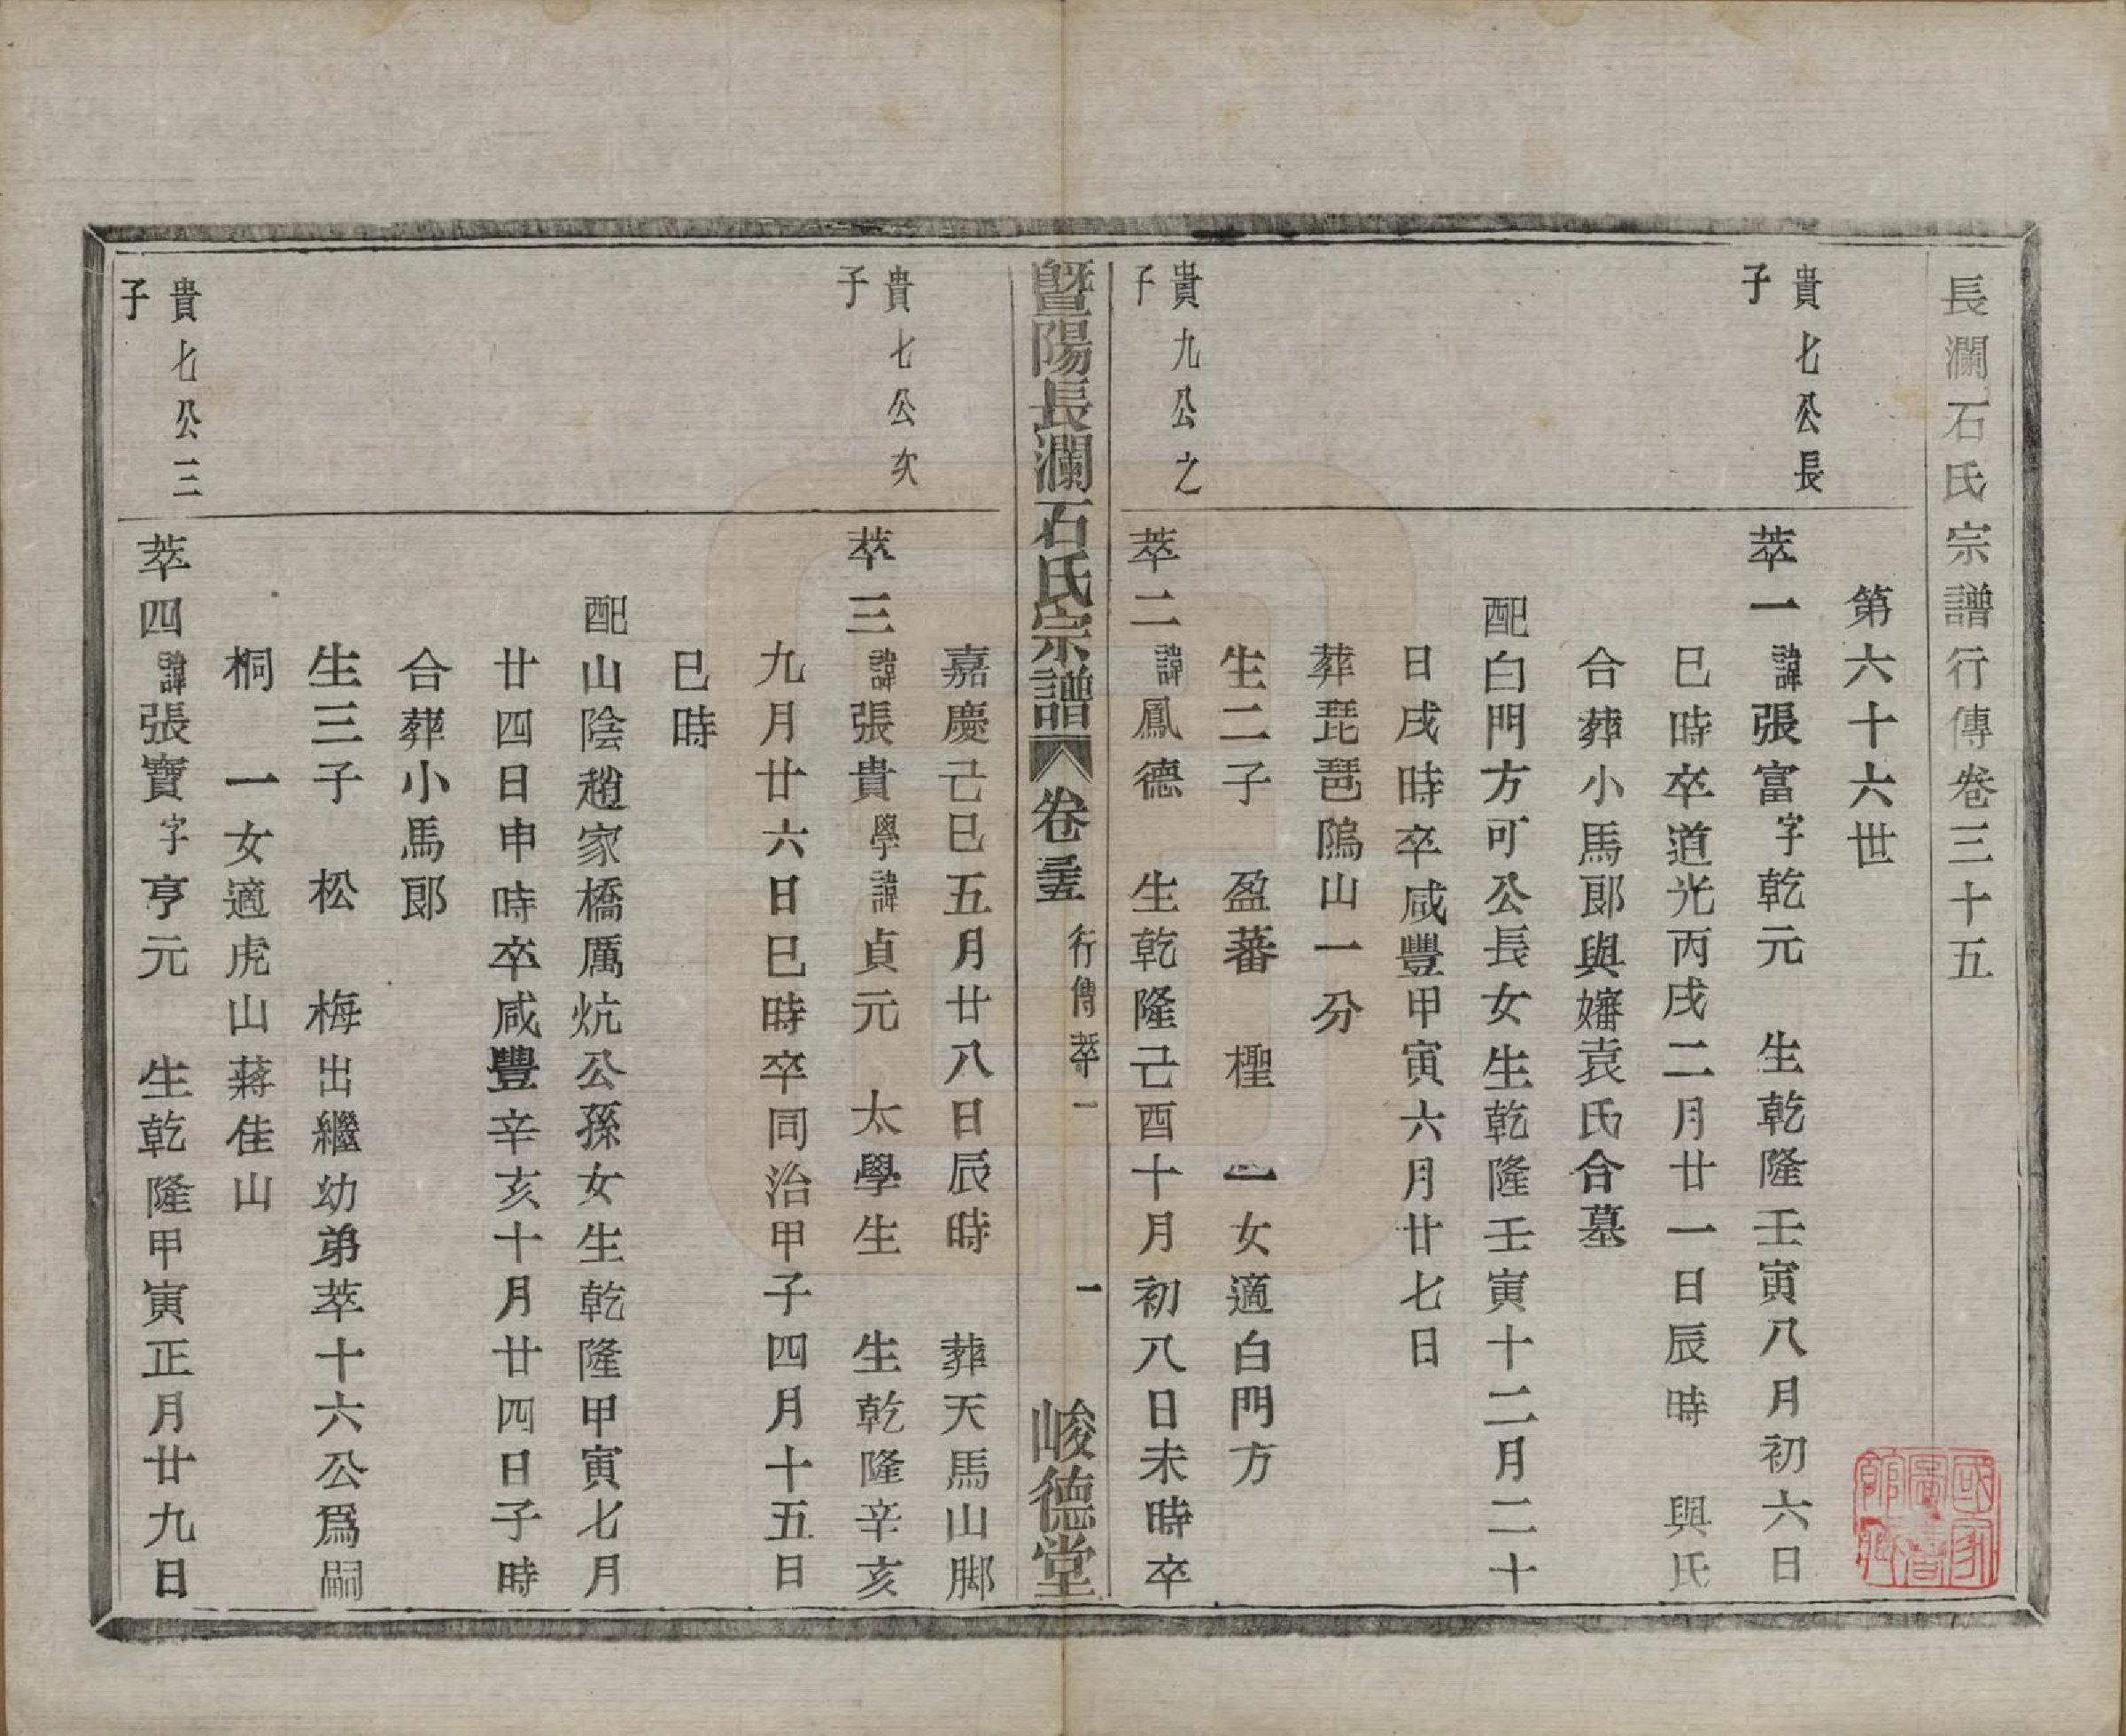 長瀾石氏宗譜行傳卷三十五
第六十六世
貴七公長
子
萃一諱張富字乾元　生乾隆壬寅八月初六日
巳時卒道光丙戌二月廿一日辰時　與氏
合葬小馬郎與嬸袁氏合墓
配白門方可公長女生乾隆壬寅十二月二十
日戌時卒咸豐甲寅六月廿七日
葬琵琶隝山一分
生二子　盈蕃　檉　一女適白門方
貴九公之
子
萃二諱鳳德　生乾隆己酉十月初八日未時卒
暨陽長瀾石氏宗譜　卷三十五　行傳萃一　一　峻德堂
嘉慶己巳五月廿八日辰時　葬天馬山脚
貴七公次
子
萃三諱張貴學諱貞元　太學生　生乾隆辛亥
九月廿六日巳時卒同治甲子四月十五日
巳時
配山陰趙家橋厲炕公孫女生乾隆甲寅七月
廿四日申時卒咸豐辛亥十月廿四日子時
合葬小馬郎
生三子　松　梅出繼幼弟萃十六公爲嗣
桐　一女適虎山蔣佳山
貴七公三
子
萃四諱張寶字亨元　生乾隆甲寅正月廿九日
國家圖書館藏